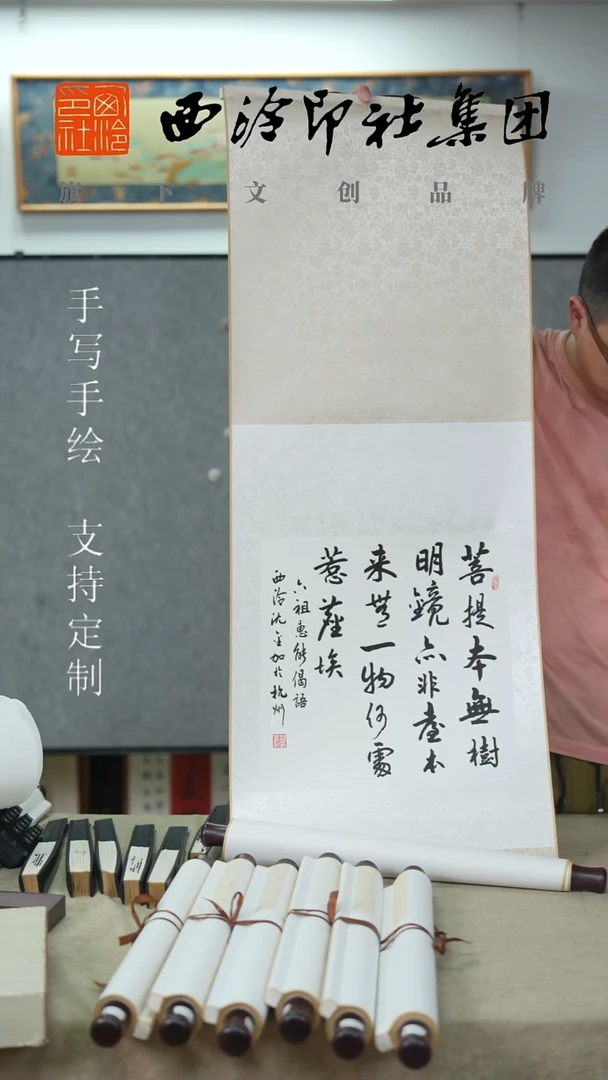 西泠印社
西泠印社集团
旗下文创品牌
手写手绘 支持定制
菩提本無樹
明鏡亦非臺本
来無一物何處
惹塵埃
六祖惠能偈語
西泠沈加於杭州